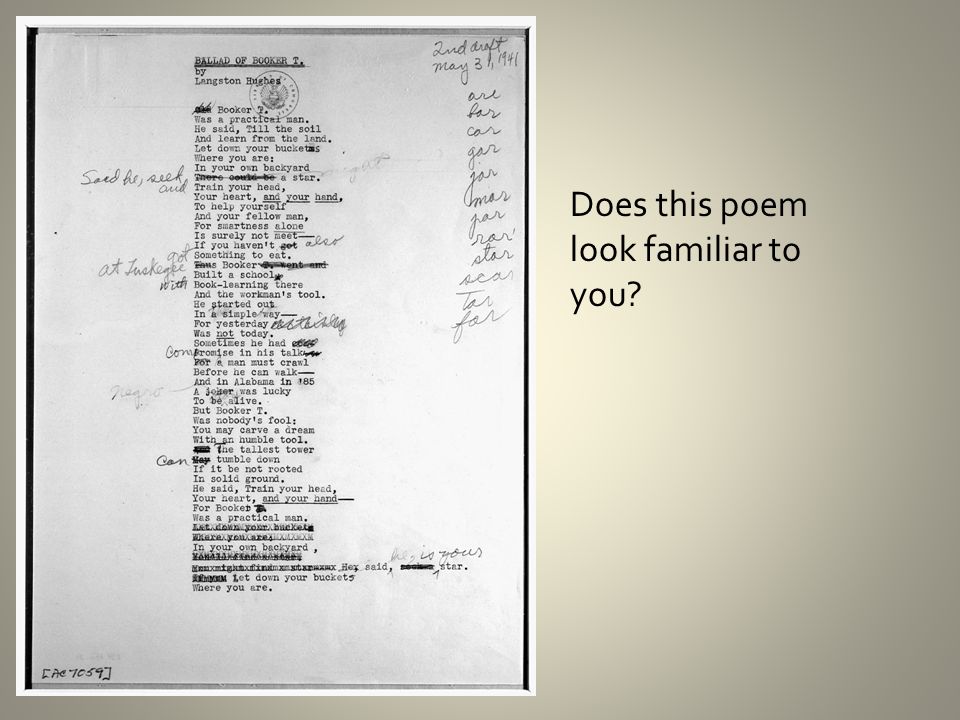 2nd draft
May 31, 1941
BALLAD OF BOOKER T.
by
Langston Hughes
Booker T.
Was a practical man.
He said, Till the soil
And learn from the land.
Let down your buckets
Where you are:
In your own backyard
There could be a star.
Said he, seek
and
Train your head,
Your heart, and your hand,
To help yourself
And your fellow man,
For smartness alone
Is surely not meet—
If you haven't got also
Something to eat.
got
at Tuskegee
with
Thus Booker T. went and
Built a school,
Book-learning there
And the workman's tool.
He started out
In a simple way—
For yesterday
Was not today.
Sometimes he had
Com
promise in his talk
For a man must crawl
Before he can walk—
And in Alabama in '85
negro
A joker was lucky
To be alive.
But Booker T.
Was nobody's fool:
You may carve a dream
With an humble tool.
The tallest tower
Can
May tumble down
If it be not rooted
In solid ground.
He said, Train your head,
Your heart, and your hand—
For Booker T.
Was a practical man.
Let down your buckets
Where you are:
In your own backyard,
he, is your
might find star He said, star.
Let down your buckets
Where you are.
are
bar
car
gar
jar
mar
par
rar
star
scar
tar
far
[AC 7059]
Does this poem
look familiar to
you?